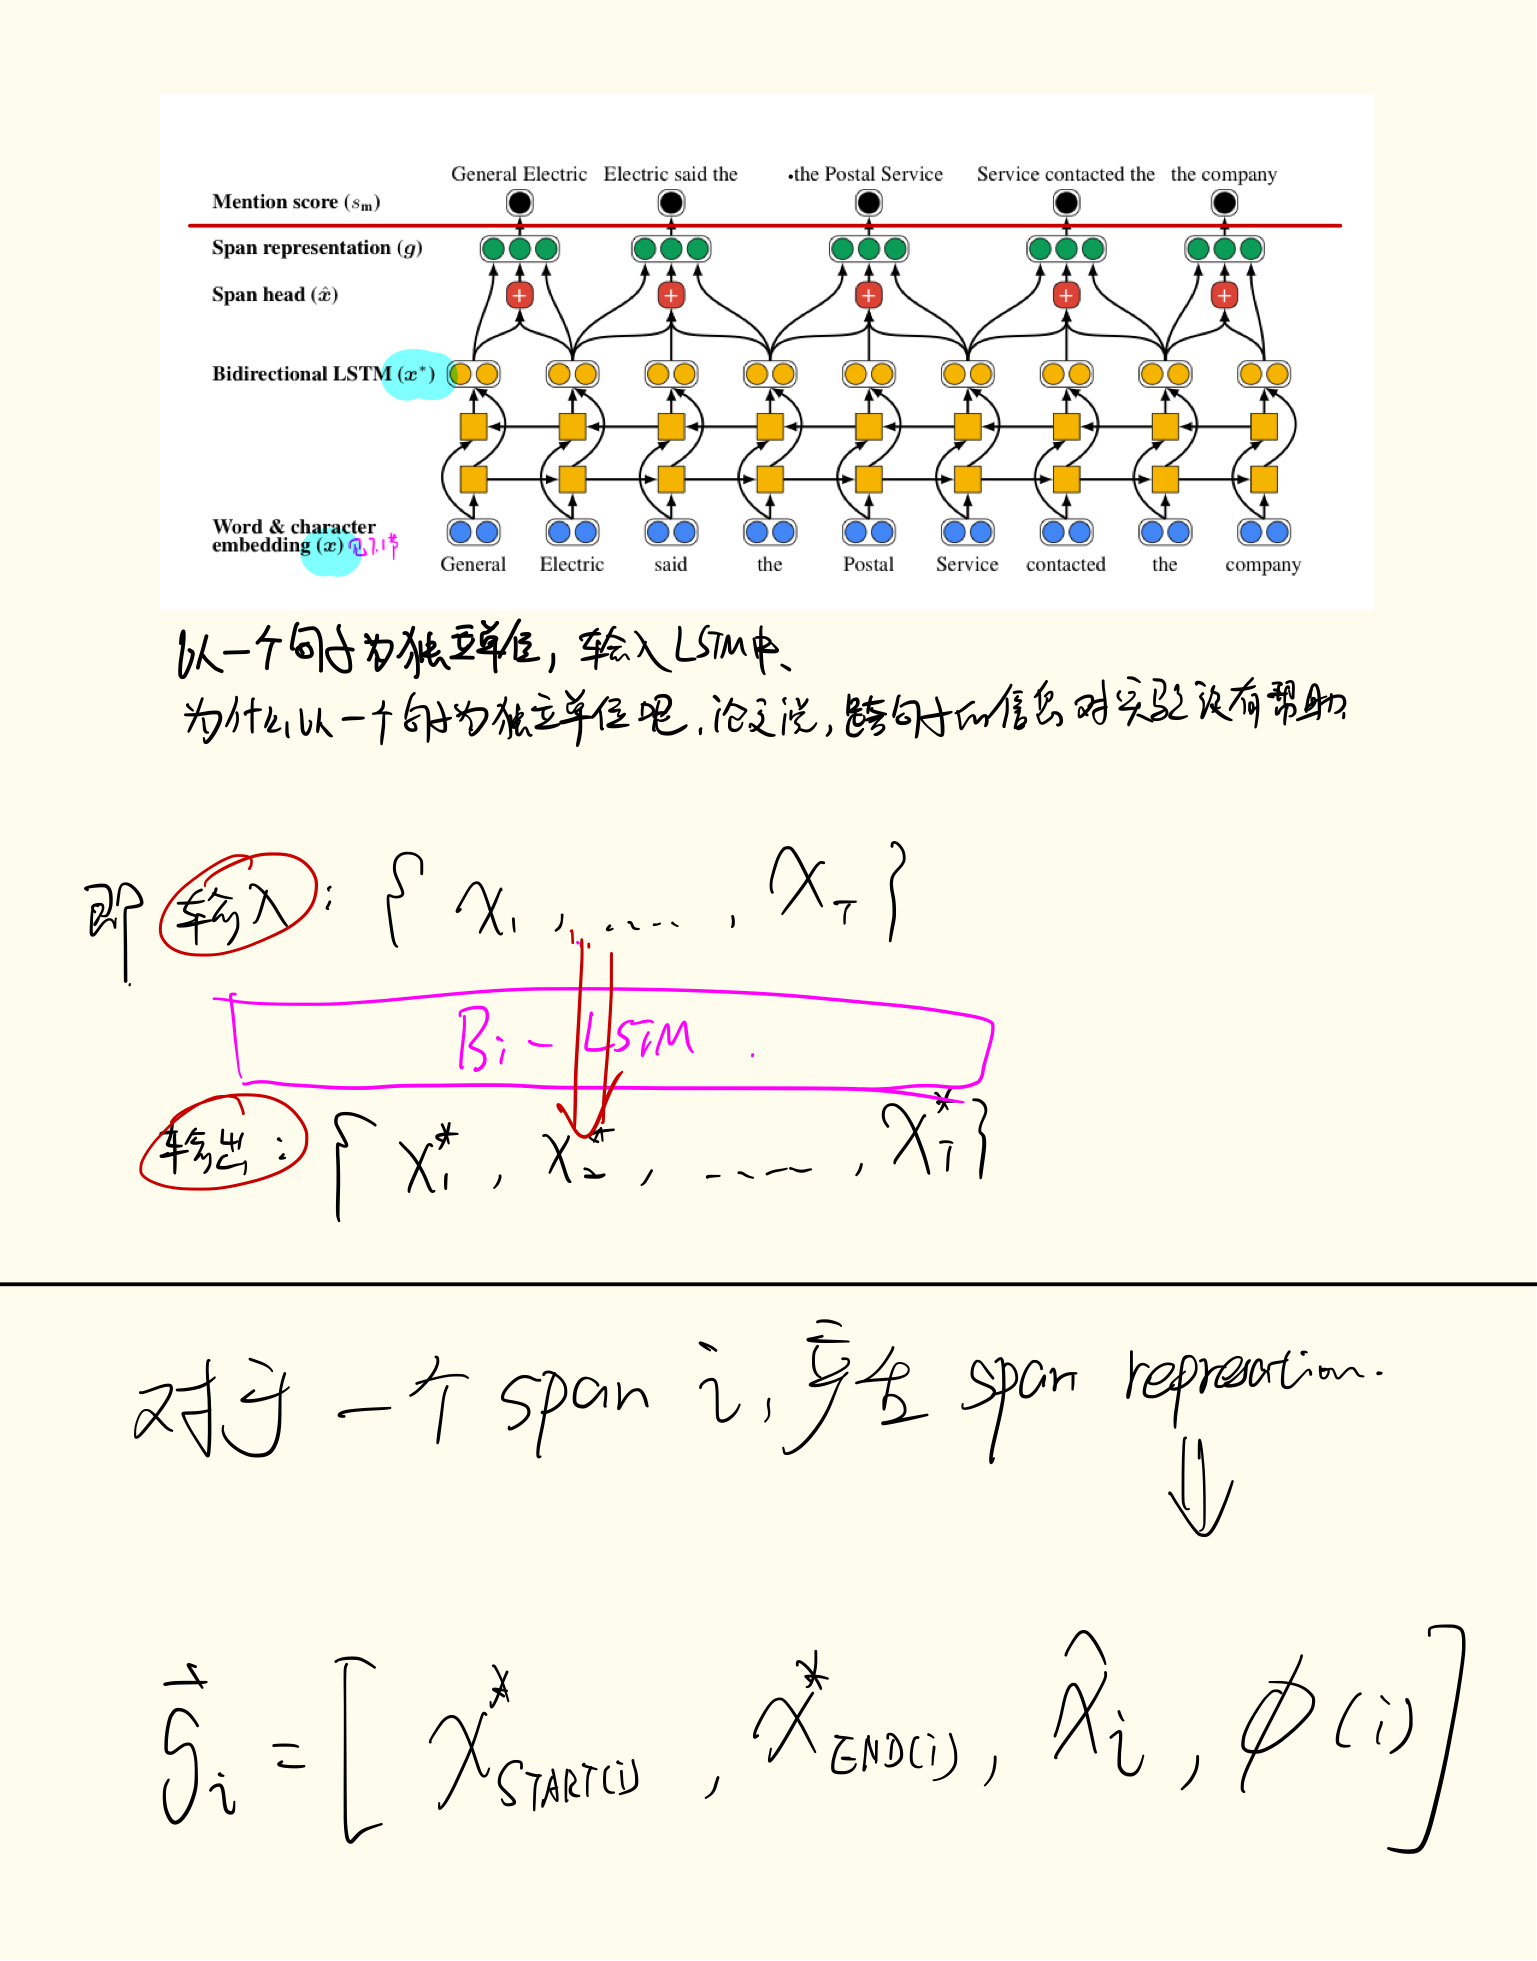 General Electric Electric said the the Postal Service Service contacted the the company
Mention score (sm)
Span representation (g)
Span head (x̂)
Bidirectional LSTM (x*)
Word & character
embedding (x) 见7.1节
General Electric said the Postal Service contacted the company
以一个句子为独立单位，输入LSTM中、
为什么以一个句子为独立单位呢，论文说，跨句子的信息对实验没有帮助.
即 输入： { x₁ , ..... , x_T }
Bi-LSTM .
输出： { x₁* , x₂* , ..... , x_T* }
对于一个 span i, 产生 span represation.
g⃗ᵢ = [ x*_START(i) , x*_END(i) , x̂ᵢ , ϕ(i) ]